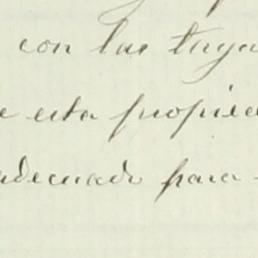 con las tuya
e esta propied
adecuado para